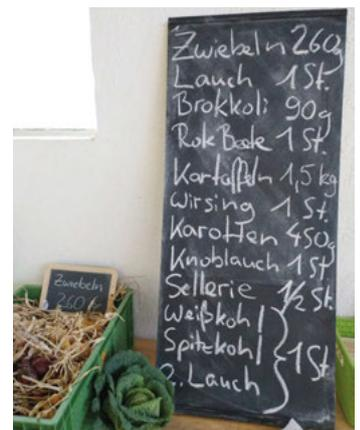 Zwiebeln 260g
Lauch 1 St.
Brokkoli 90g
Rote Beete 1 St.
Kartoffeln 1,5 kg
Wirsing 1 St.
Karotten 450g
Knoblauch 1 St
Sellerie 1/2 St.
Weißkohl
Spitzkohl 1 St.
o. Lauch
Zwiebeln
260g